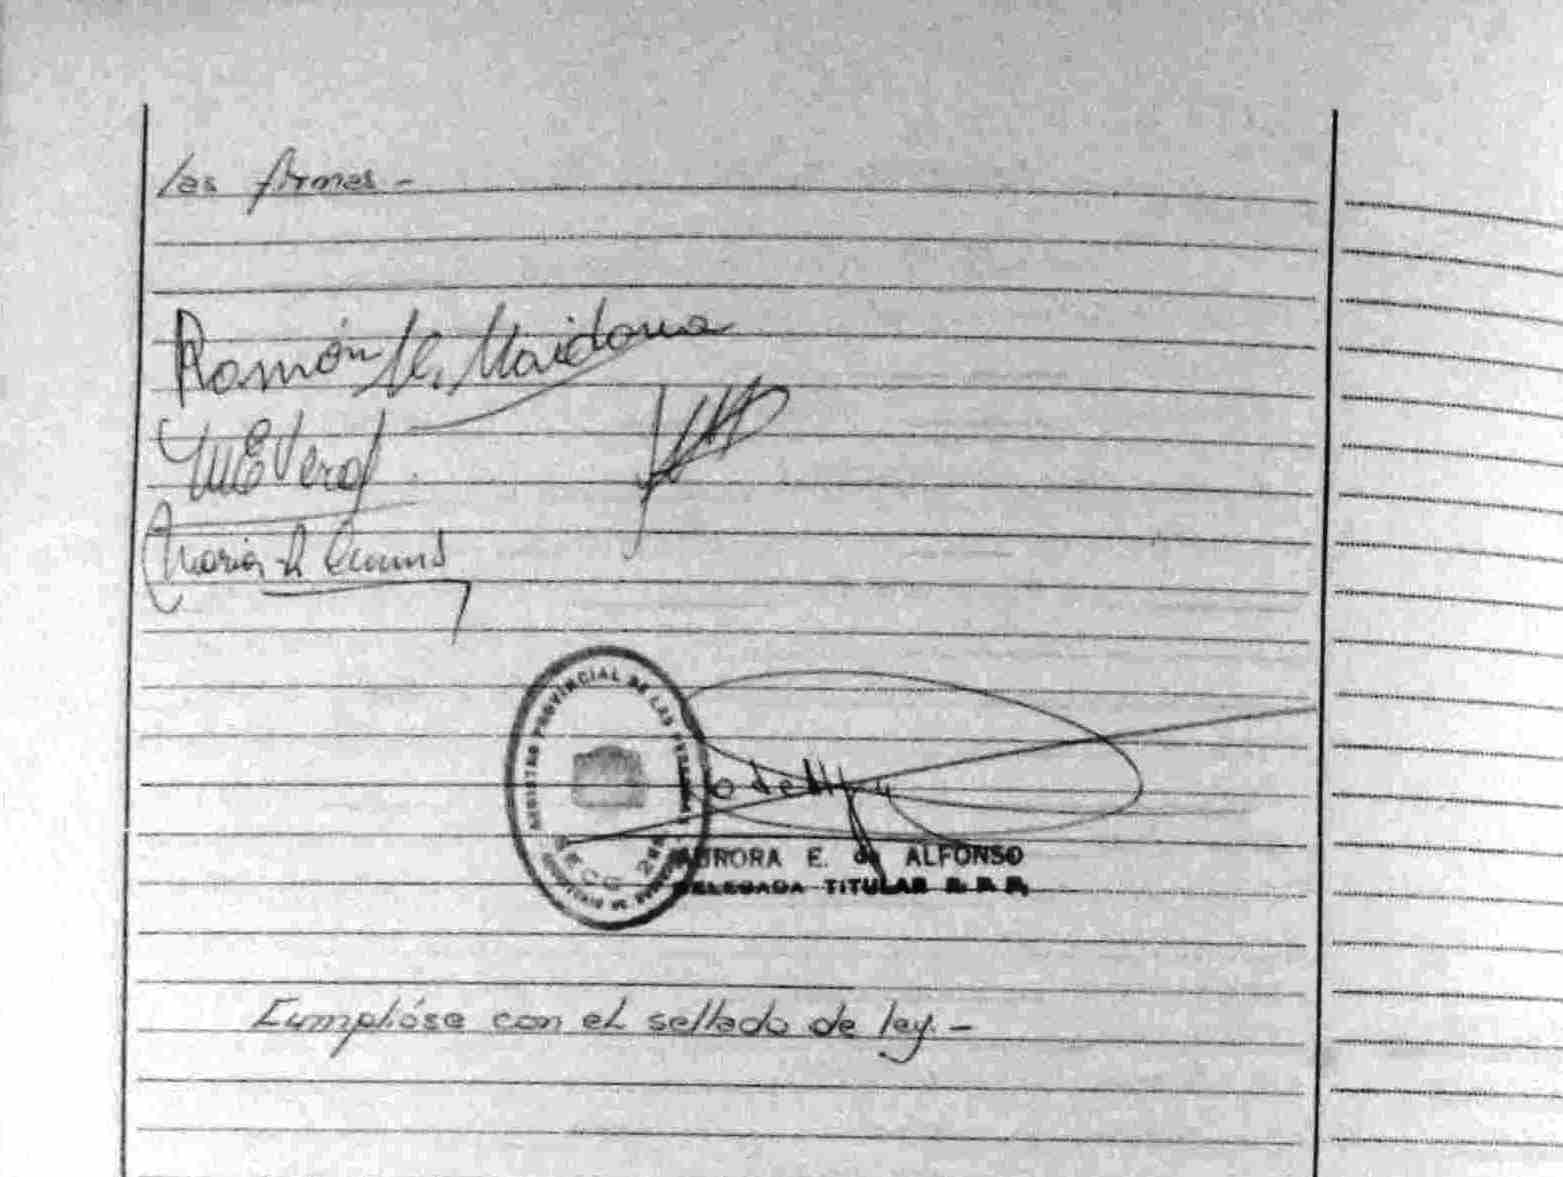 las firmas -
Ramón M. Maidana
M E Vera
Maria L
REGISTRO PROVINCIAL DE LAS PERSONAS
SECC
AURORA E. de ALFONSO
DELEGADA TITULAR R. P. P.
Cumplióse con el sellado de ley. -